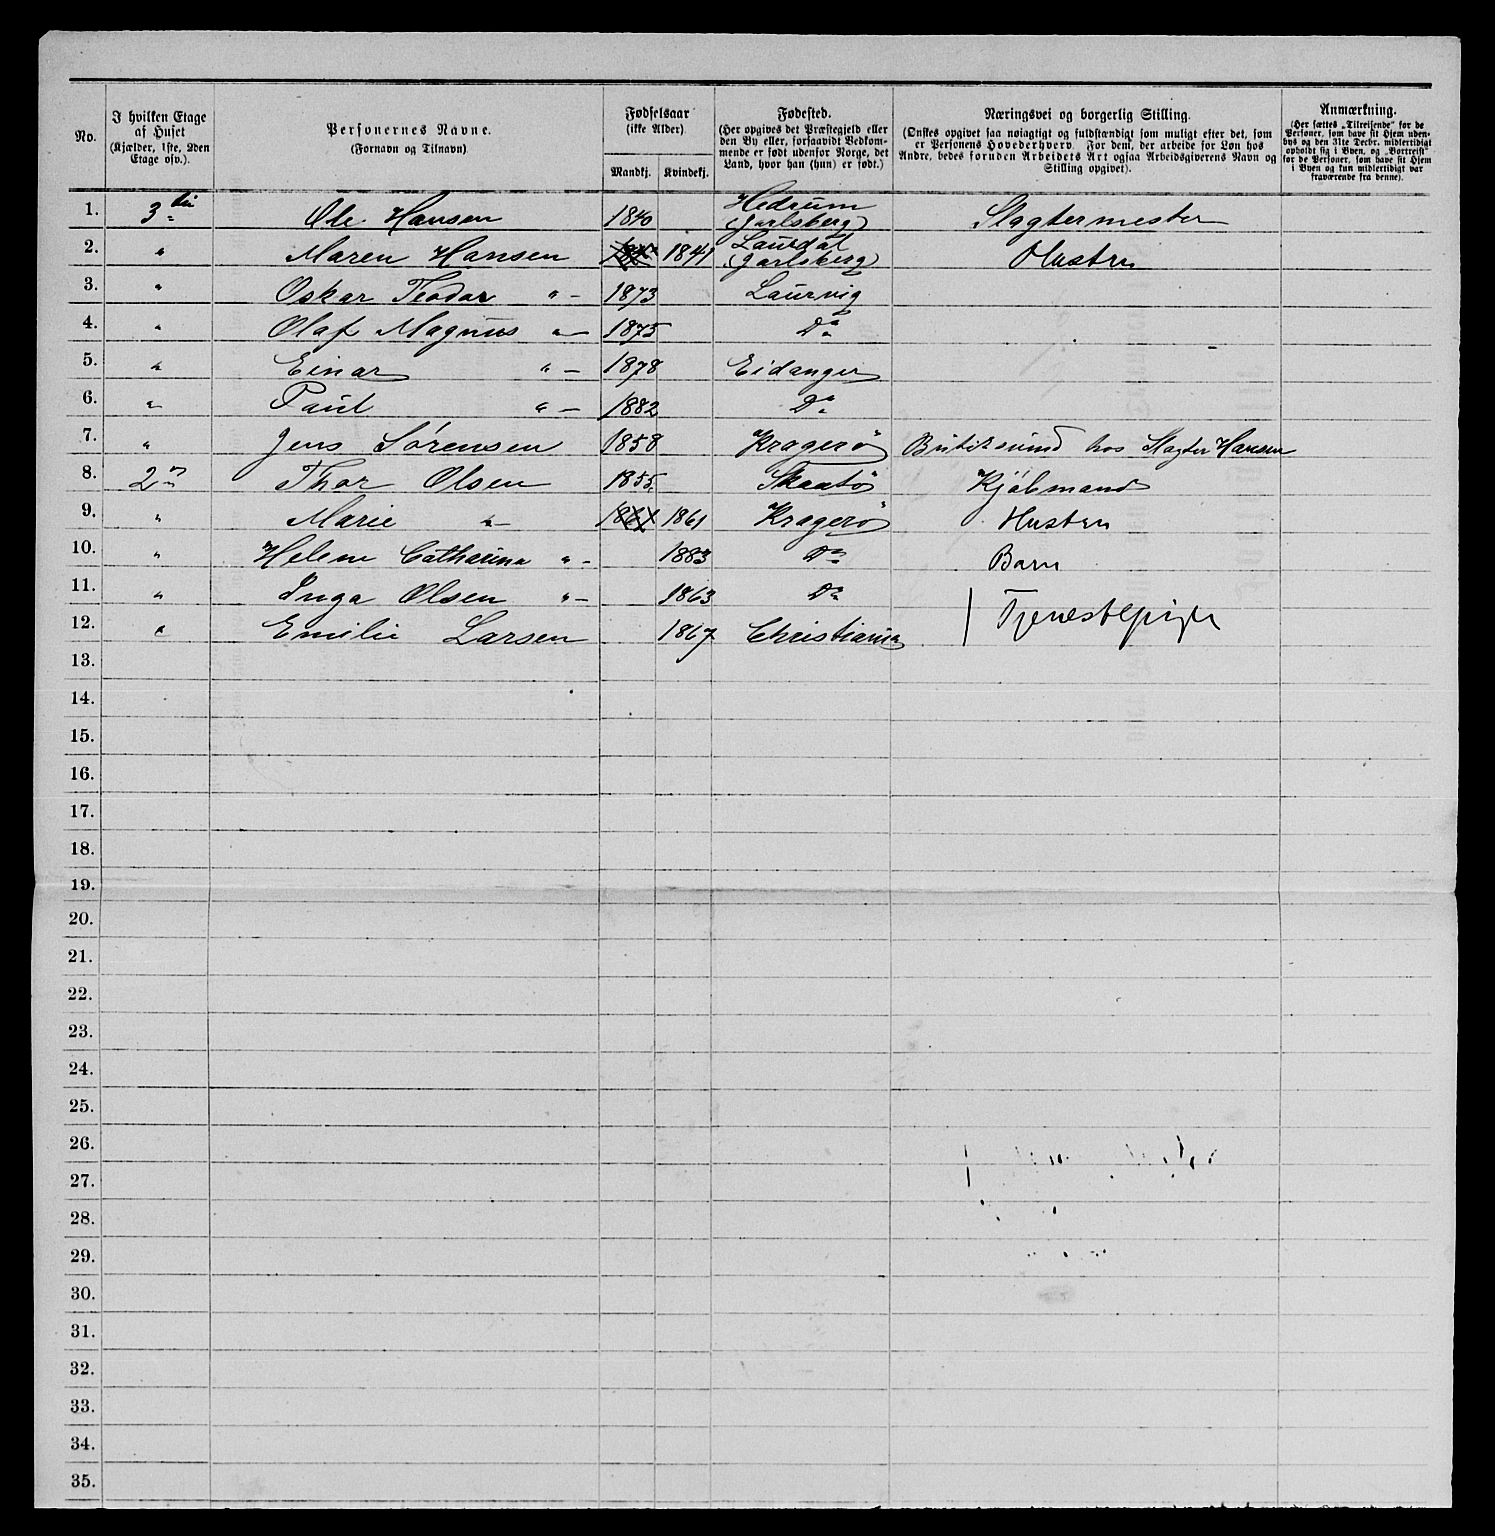 No.
I hvilken Etage af Huset
(Kjælder, 1ste, 2den Etage osv.).
Personernes Navne.
(Fornavn og Tilnavn)
Fødselsaar
(ikke Alder)
Mandkj. Kvindekj.
Fødested.
(Her opgives det Præstegjeld eller
den By eller, forsaavidt Vedkom-
mende er født udenfor Norge, det
Land, hvor han (hun) er født.)
Næringsvei og borgerlig Stilling.
(Ønskes opgivet saa nøiagtigt og fuldstændigt som muligt efter det, som
er Personens Hovederhverv. For dem, der arbeide for Løn hos
Andre, bedes foruden Arbeidets Art ogsaa Arbeidsgiverens Navn og
Stilling opgivet).
Anmærkning.
(Her sættes „Tilreisende" for de
Personer, som have sit Hjem uden-
bys og den 31te Decbr. midlertidigt
opholdt sig i Byen, og „Bortreist"
for de Personer, som have sit Hjem
i Byen og kun midlertidigt var
fraværende fra denne).
1. 3die Ole Hansen 1840 Hedrum (Jarlsberg) Slagtermester
2. " Maren Hansen 1841 Laurdal (Jarlsberg) Hustru
3. " Oskar Teodor " - 1873 Laurvig
4. " Olaf Magnus " - 1875 Do
5. " Einar " - 1878 Eidanger
6. " Paul " - 1882 Do
7. " Jens Sörensen 1858 Kragerö hos Slagter Hansen
8. 2n Thor Olsen 1855 Skaatö Kjöbmand
9. " Marie " - 1861 Kragerö Hustru
10. " Helene Catharina " - 1883 Do Barn
11. " Inga Olsen " - 1863 Do Tjenestepige
12. " Emilie Larsen 1867 Christiania
13.
14.
15.
16.
17.
18.
19.
20.
21.
22.
23.
24.
25.
26.
27.
28.
29.
30.
31.
32.
33.
34.
35.